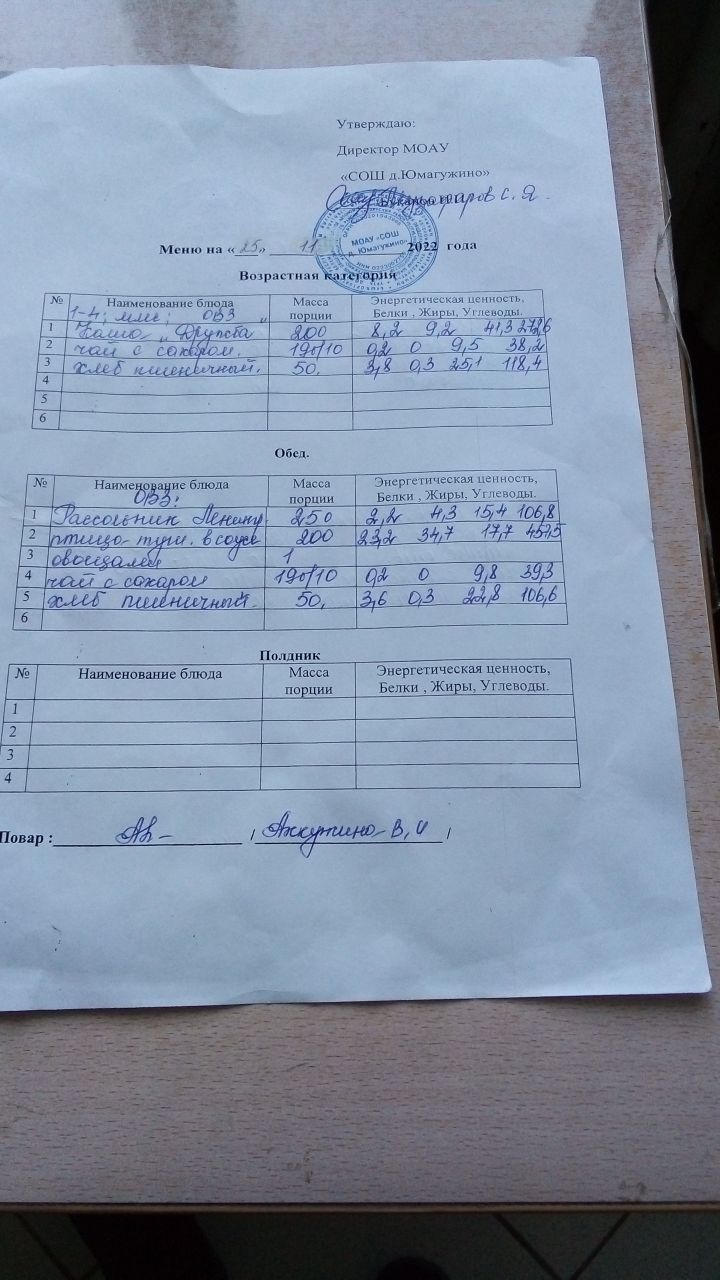 Утверждаю:
Директор МОАУ
«СОШ д.Юмагужино»
С. Я.
МОАУ «СОШ д. Юмагужино»
Меню на «25» 11 2022 года
Возрастная категория
№ Наименование блюда Масса порции Энергетическая ценность, Белки , Жиры, Углеводы.
1-4; ОВЗ „
1 Каша „Дружба 200 8,2 9,2 41,3 272,6
2 чай с сахаром. 190/10 0,2 0 9,5 38,2
3 хлеб пшеничный. 50. 3,8 0,3 25,1 118,4
4
5
6
Обед.
№ Наименование блюда Масса порции Энергетическая ценность, Белки , Жиры, Углеводы.
ОВЗ:
1 Рассольник Ленингр 250 2,2 4,3 15,4 106,8
2 птица туш. в соусе 200 23,2 34,7 17,7 457,5
3 овощами 1
4 чай с сахаром 190/10 0,2 0 9,8 39,3
5 хлеб пшеничный. 50. 3,6 0,3 22,8 106,6
6
Полдник
№ Наименование блюда Масса порции Энергетическая ценность, Белки , Жиры, Углеводы.
1
2
3
4
Повар : / Аккужина В, И /